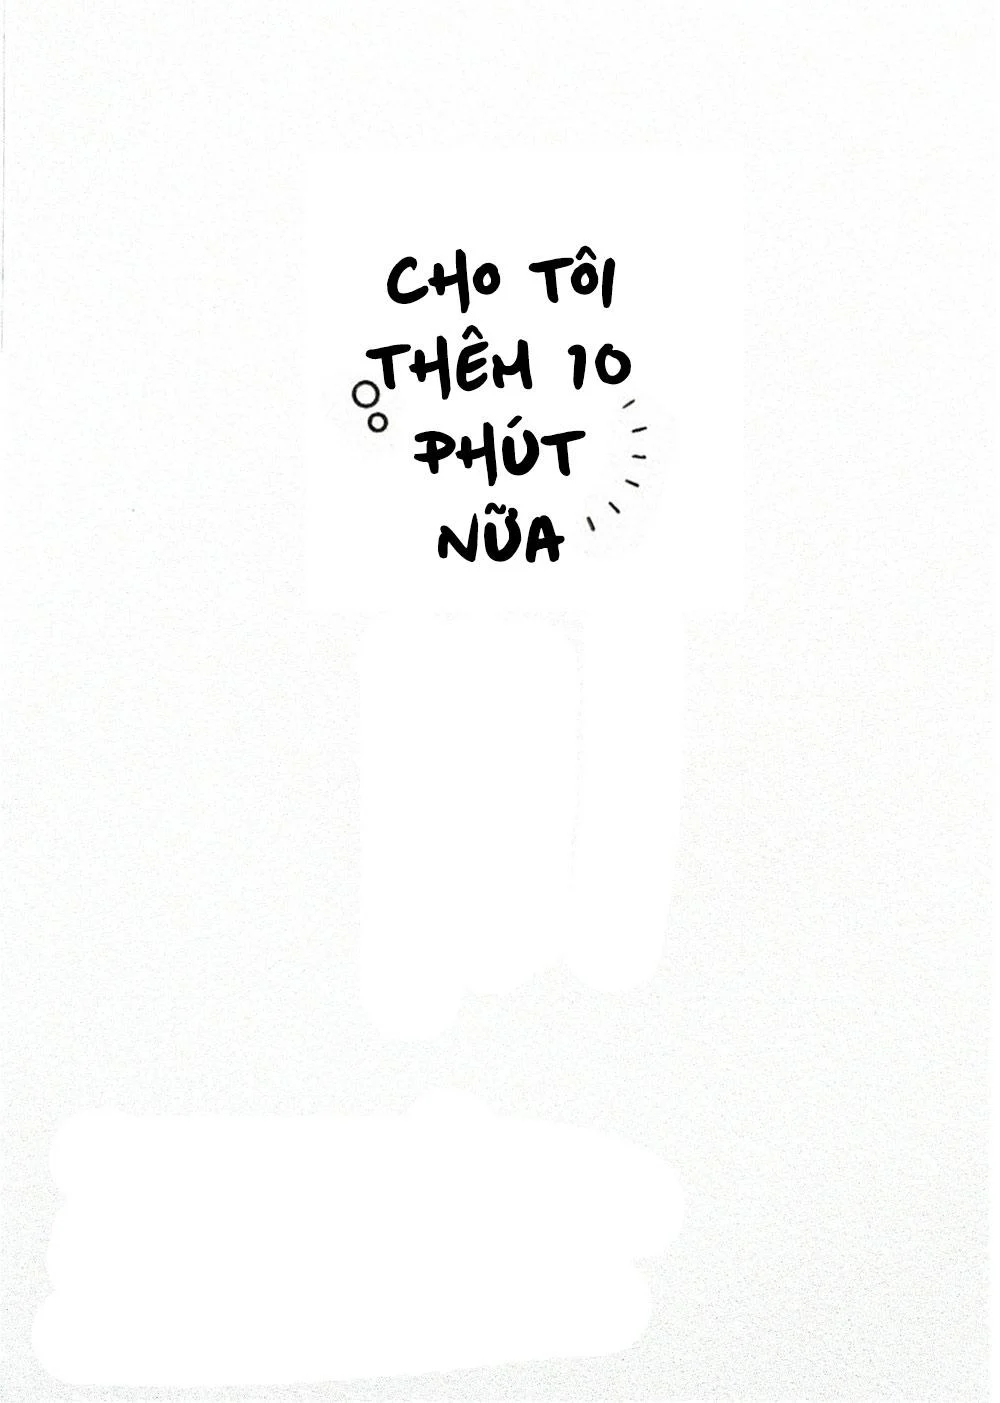 CHO TÔI
THÊM 10
PHÚT
NỮA